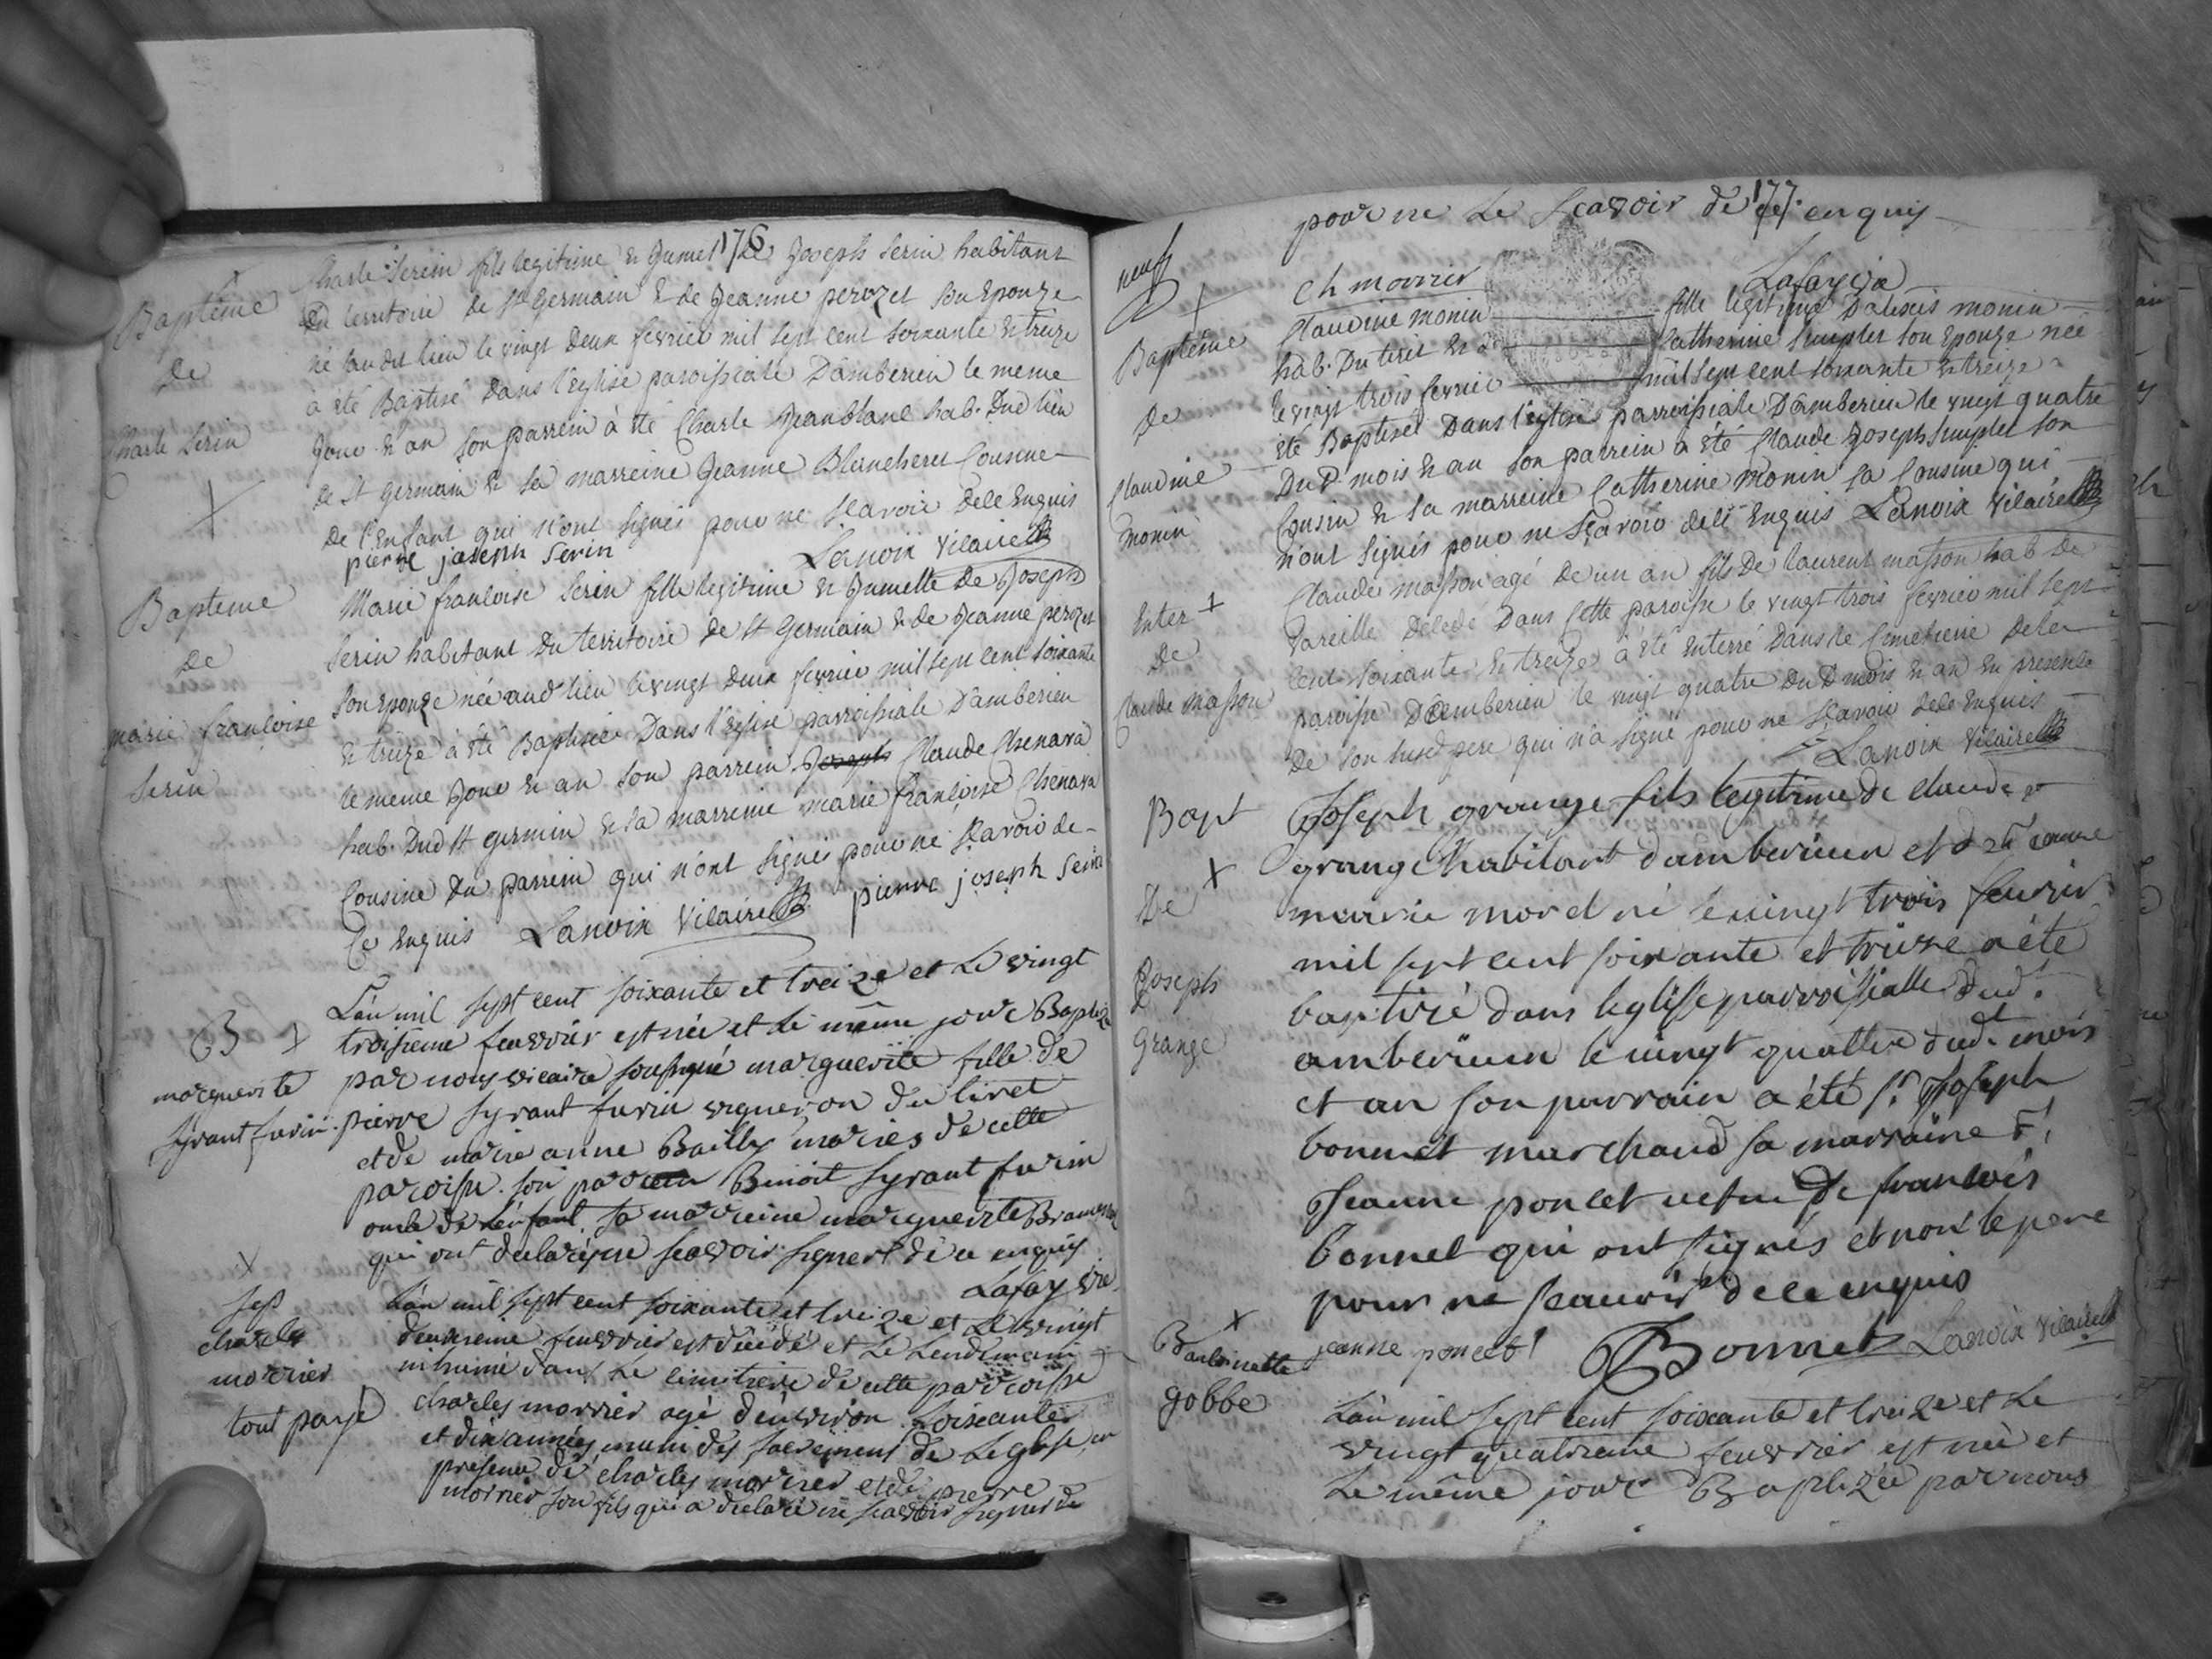 176
Baptême
De
Charle Serin
Charle Serin fils legitime & Jumel De Joseph Serin habitant
Du territoire de St Germain & de Jeanne perozet son Epouze
né aud lieu le vingt deux fevrier mil sept cent soixante & treize
à été Baptisé Dans l'Eglise paroissiale D'amberieu le meme
Jour & an son parrein à été Charle Jeanblanc hab. Dud lieu
de St germain & sa marreine Jeanne Blancheret Cousine
De l'Enfant qui n'ont signés pour ne sçavoir De ce Enquis
pierre joseph Serin Lanoix Vicaire
Bapteme
De
marie françoise
Serin
Marie françoise Serin fille legitime & Jumelle De Joseph
Serin habitant Du territoire de St Germain & de Jeanne perozet
son Epouze née aud lieu le vingt deux fevrier mil sept cent soixante
& treize à été Baptisée Dans l'Eglise parroissiale D'amberieu
le meme Jour & an son parrein Joseph Claude Chenava
hab. Dud St germin & sa marreine marie françoise Chenava
Cousine Du parrein qui n'ont signés pour ne sçavoir de
Ce Enquis Lanoix Vicaire pierre joseph Serin
B +
marguerite
syrant furin
L'an mil sept cent soixante et treize et Le vingt
troisieme feuvrier est née et Le même jour Baptizé
par nous vicaire soussigné marguerite fille de
pierre syrant furin vigneron du tiret
et de marie anne Bailly mariés de cette
paroisse. son parrein Benoit syrant furin
oncle de L'enfant. sa marreine marguerite
qui ont declaré ne scavoir signer de ce enquis
Lafay vre
+
sep
charles
morrier
tout payé
L'an mil sept cent soixante et treize et Le vingt
deuxieme feuvrier est décédé et Le Lendemain
inhumé dans Le cimitiere de cette parroisse
charles morrier agé d'environ soixante
et dix années muni des sacremens de Leglise, en
presence de charles morrier et de pierre
morrier son fils qui a declaré ne scavoir signer de
177
pour ne Le scavoir de ce enquis
neuf
ch morrier Lafay vre
Baptême
De
Claudine
monin
Claudine monin fille legitime D'alexis monin
hab. Du tiret & Catherine simplet son Epouze née
le vingt trois fevrier mil sept cent soixante & treize
été Baptisée Dans l'eglise parroissiale D'amberieu le vingt quatre
Du D. mois & an son parrein a été Claude Joseph simplet son
Cousin & sa marreine Catherine Monin sa Cousine qui
n'ont signés pour ne sçavoir de ce Enquis Lanoix Vicaire
Enter +
De
Claude Masson
Claude Masson agé de un an fils De laurent masson hab de
Vareille Décedé Dans Cette paroisse le vingt trois fevrier mil sept
cent soixante & treize à été Enterré Dans le Cimetiere De la
paroisse D'amberieu le vingt quatre Du D mois & an En presence
De son susd pere qui n'a signé pour ne sçavoir de ce Enquis
Lanoix Vicaire
Bapt
+
De
Joseph
Grange
Joseph grange fils legitime de claude
grange habitant d'amberieu et de
marie morel né le vingt trois feuvrier
mil sept cent soixante et treize a été
baptisé dans leglise parroissialle dud.
amberieu le vingt quattre dud. mois
et an son parrain a été sr Joseph
bonnet marchand sa marraine
Jeanne poncet vefue de francois
bonnet qui ont signés et non le pere
pour ne scauoir de ce enquis
jeanne poncet Bonnet Lanoix Vicaire
+
B antoinette
gobbe
L'an mil sept cent soixante et treize et Le
vingt quatrieme feuvrier est née et
Le même jour Baptizée par nous